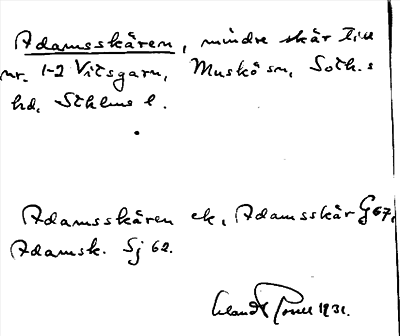 Adamsskären, mindre skär till
nr. 1-2 Vitsgarn, Muskö sn, Soth.s
hd, Sthlms l.
Adamsskären ek, Adamsskär G 67,
Adamsk. Sj 62.
1931.